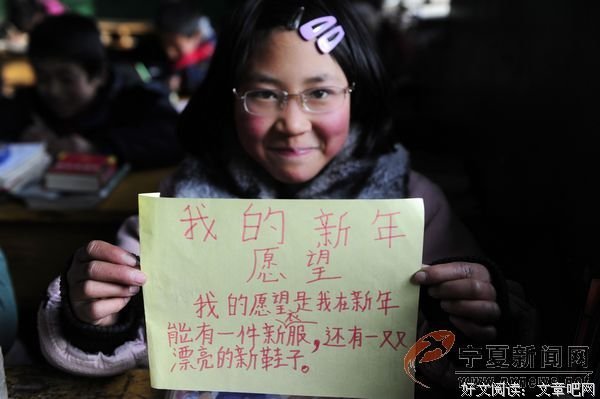 我的新年
愿望
我的愿望是我在新年
能有一件新服，还有一双
衣
漂亮的新鞋子。
宁夏新闻网
www.nxnews.net
好文阅读：文章吧网